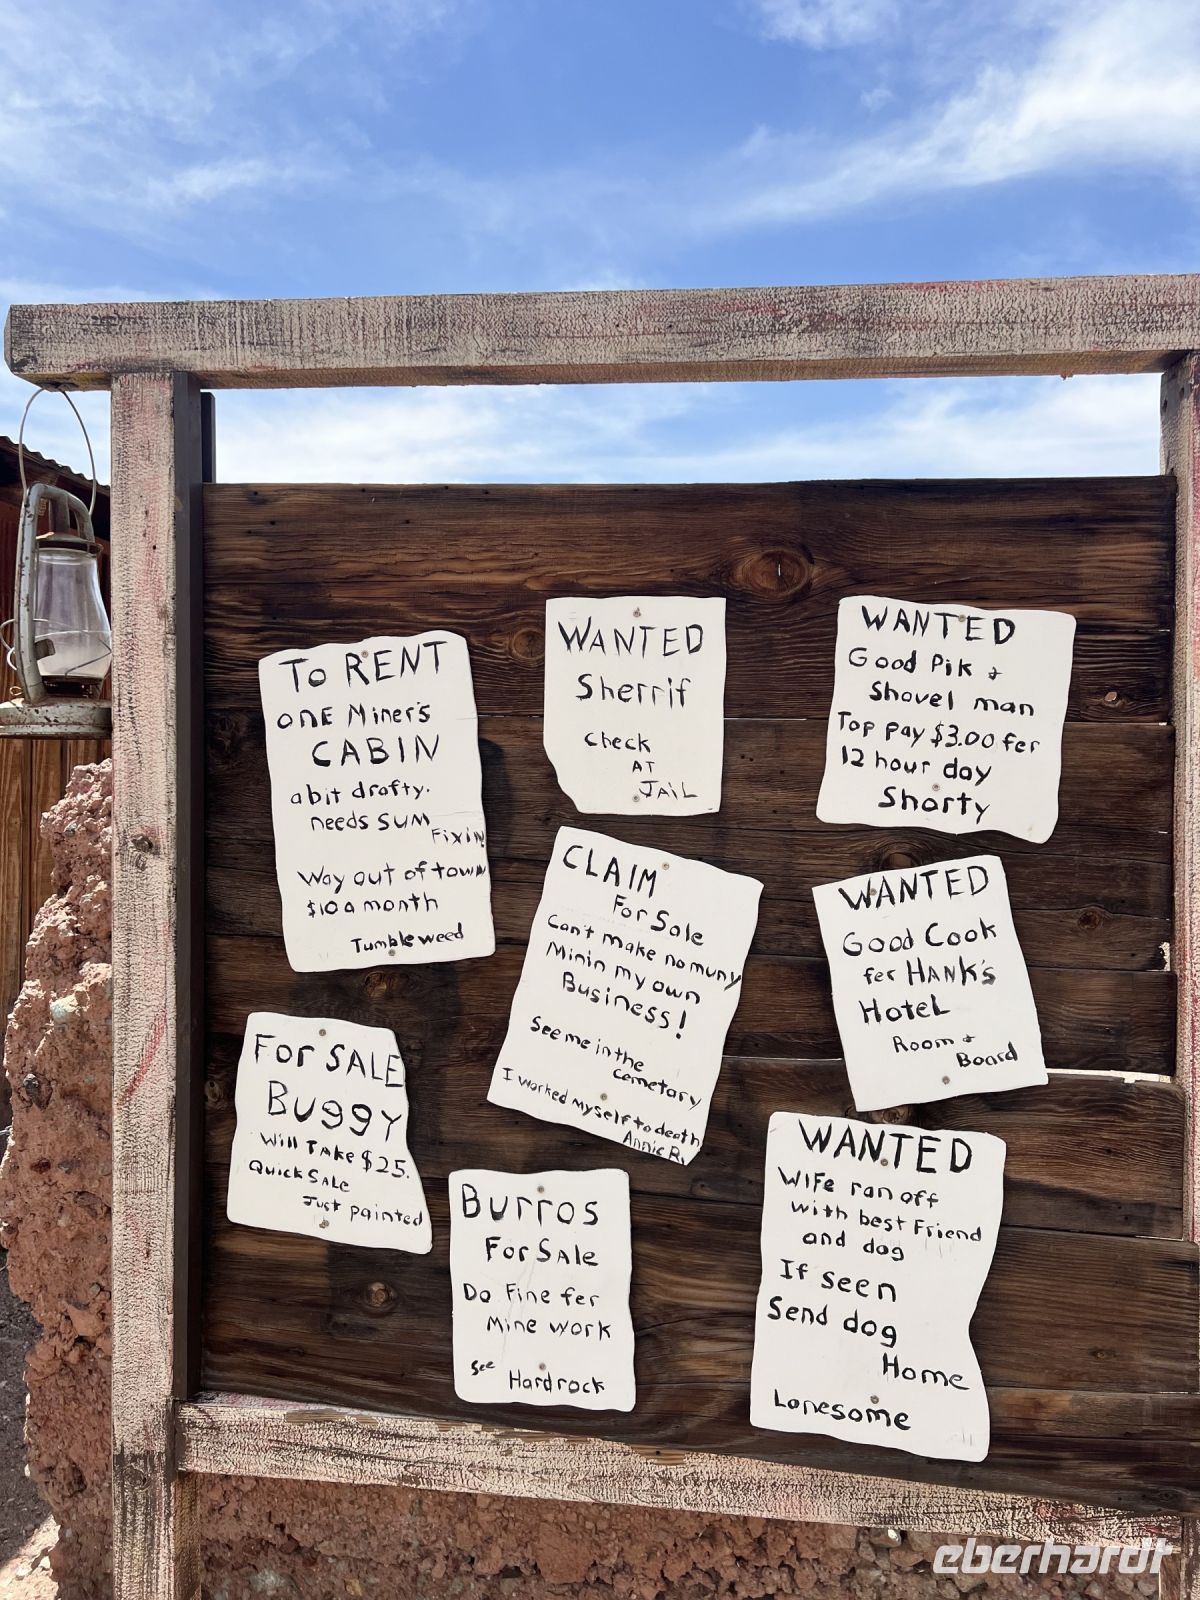 To RENT
ONE Miner's
CABIN
a bit drafty.
needs SUM
Fixin
Way out of town
$10 a month
Tumbleweed
WANTED
Sherrif
Check
AT
JAIL
WANTED
Good Pik &
Shovel man
Top pay $3.00 fer
12 hour day
Shorty
CLAIM
For Sale
Can't make no muny
Minin my own
Business!
See me in the
cemetary
I worked myself to death
Annie R.
WANTED
Good Cook
fer HANK's
Hotel
Room &
Board
For SALE
Buggy
Will Take $25.
Quick Sale
Just painted
Burros
For Sale
Do Fine fer
Mine work
See
Hardrock
WANTED
Wife ran off
with best Friend
and dog
If seen
Send dog
Home
Lonesome
eberhardt